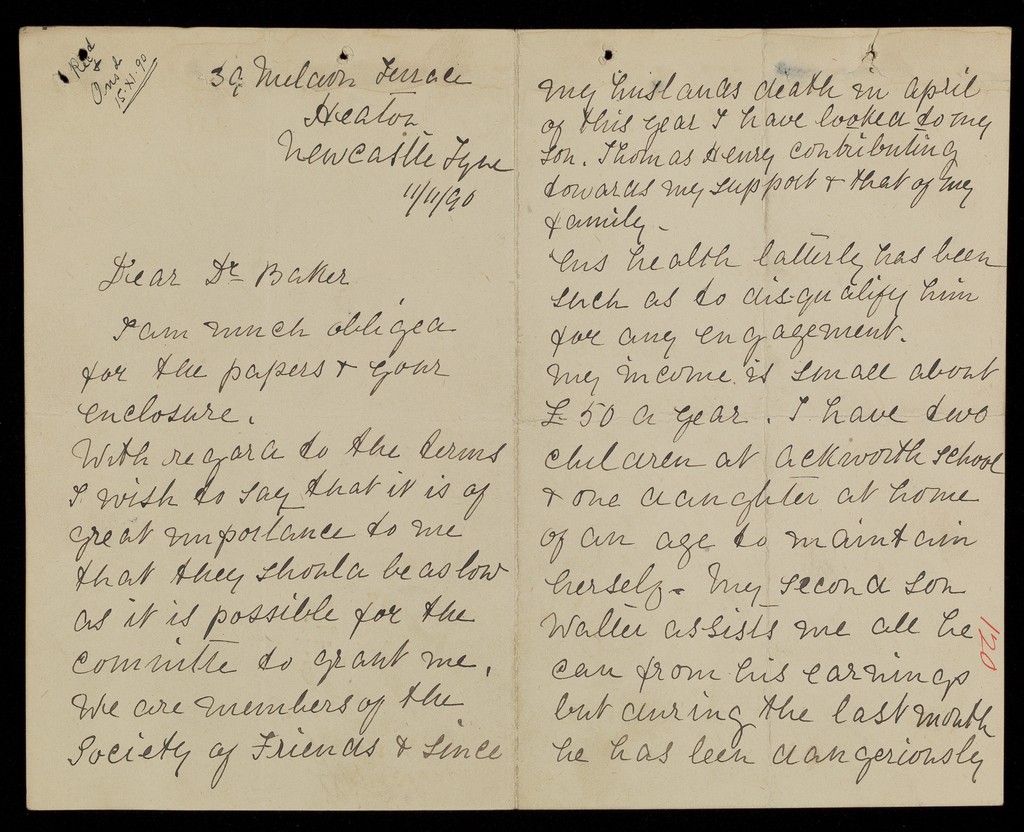 Recd
&
Ansd
15.XI.90
39 Meldon Terrace
Heaton
Newcastle Tyne
11/11/90
Dear Dr Baker
I am much obliged
for the papers & your
enclosure.
With regard to the terms
I wish to say that it is of
great importance to me
that they should be as low
as it is possible for the
committe to grant me.
We are members of the
Society of Friends & since
my husbands death in april
of this year I have looked to my
son. Thomas Henry contributing
towards my support & that of my
family -
His health latterly has been
such as to dis-qualify him
for any engagement.
My income is small about
£ 50 a year. I have two
children at Ackworth School
& one daughter at home
of an age to maintain
herself - My second son
Walter assists me all he
can from his earnings
but during the last month
he has been dangeriously
120